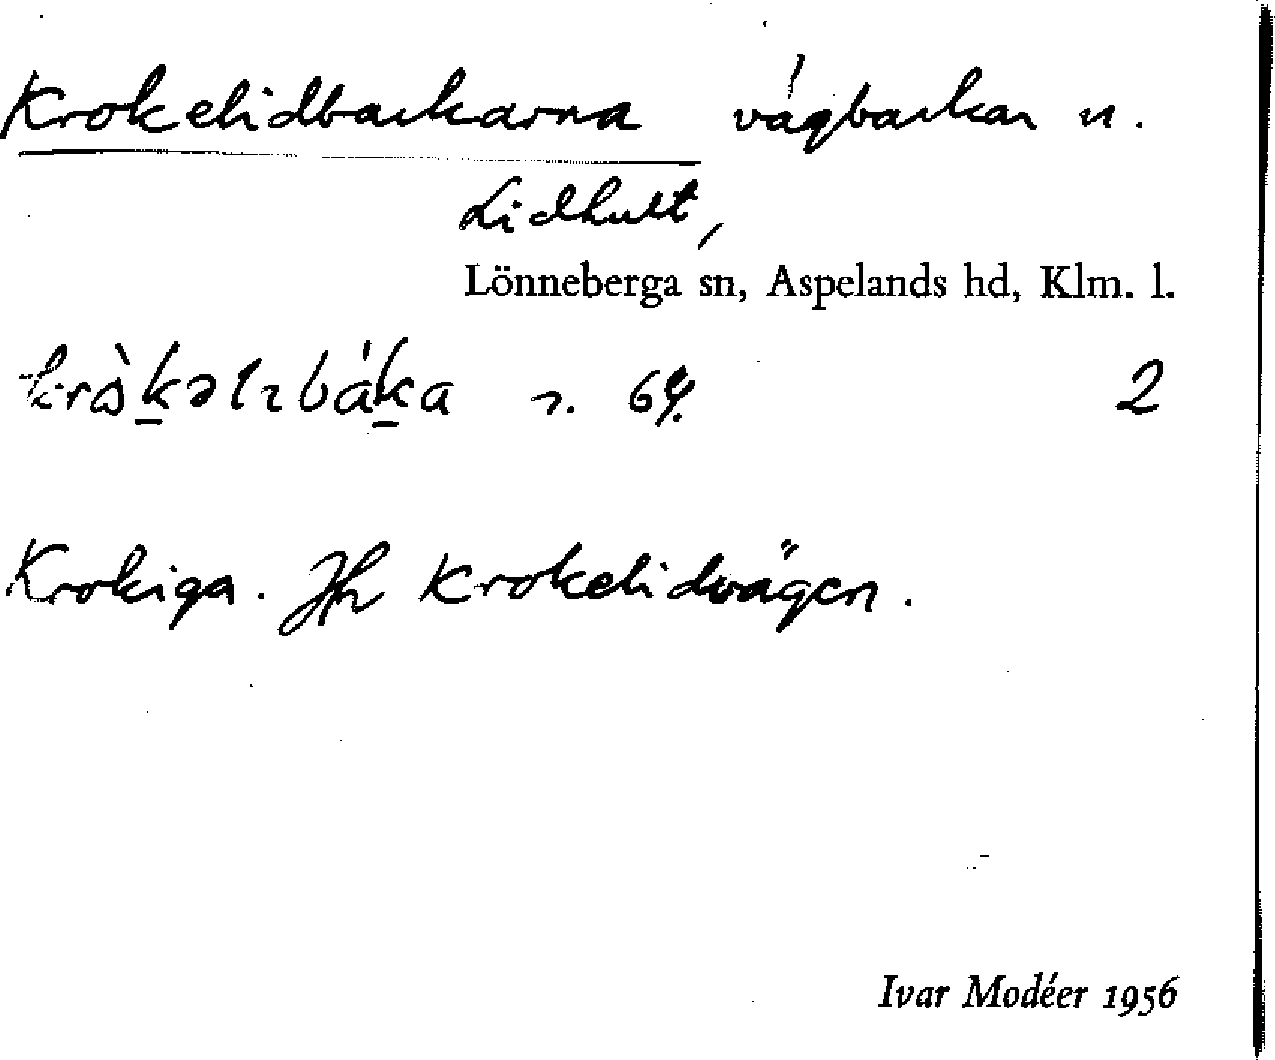 Krokelidbackarna vägbackar n.
Lidhult,
Lönneberga sn, Aspelands hd, Klm. l.
2
Krokiga. Jfr Krokelidvägen.
Ivar Modéer 1956